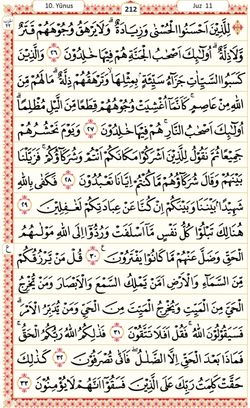 10. Yûnus 212 Juz 11
لِلَّذِينَ اَحْسَنُوا الْحُسْنٰى وَزِيَادَةٌ ۗ وَلَا يَرْهَقُ وُجُوهَهُمْ قَتَرٌ
وَّلَا ذِلَّةٌ ۗ اُولٰٓئِكَ اَصْحٰبُ الْجَنَّةِ هُمْ فِيهَا خٰلِدُونَ ٢٦ وَالَّذِينَ
كَسَبُوا السَّيِّاٰتِ جَزَآءُ سَيِّئَةٍۢ بِمِثْلِهَا وَتَرْهَقُهُمْ ذِلَّةٌ ۗ مَا لَهُمْ مِّنَ
اللّٰهِ مِنْ عَاصِمٍ ۚ كَاَنَّمَآ اُغْشِيَتْ وُجُوهُهُمْ قِطَعًا مِّنَ الَّيْلِ مُظْلِمًا ۗ
اُولٰٓئِكَ اَصْحٰبُ النَّارِ ۚ هُمْ فِيهَا خٰلِدُونَ ٢٧ وَيَوْمَ نَحْشُرُهُمْ
جَمِيعًا ثُمَّ نَقُولُ لِلَّذِينَ اَشْرَكُوا مَكَانَكُمْ اَنْتُمْ وَشُرَكَآؤُكُمْ ۚ فَزَيَّلْنَا
بَيْنَهُمْ وَقَالَ شُرَكَآؤُهُمْ مَّا كُنْتُمْ اِيَّانَا تَعْبُدُونَ ٢٨ فَكَفٰى بِاللّٰهِ
شَهِيدًاۢ بَيْنَنَا وَبَيْنَكُمْ اِنْ كُنَّا عَنْ عِبَادَتِكُمْ لَغٰفِلِينَ ٢٩
هُنَالِكَ تَبْلُوا كُلُّ نَفْسٍ مَّآ اَسْلَفَتْ وَرُدُّوٓا اِلَى اللّٰهِ مَوْلٰىهُمُ
الْحَقِّ وَضَلَّ عَنْهُمْ مَّا كَانُوا يَفْتَرُونَ ٣٠ قُلْ مَنْ يَّرْزُقُكُمْ
مِّنَ السَّمَآءِ وَالْاَرْضِ اَمَّنْ يَّمْلِكُ السَّمْعَ وَالْاَبْصَارَ وَمَنْ يُّخْرِجُ
الْحَيَّ مِنَ الْمَيِّتِ وَيُخْرِجُ الْمَيِّتَ مِنَ الْحَيِّ وَمَنْ يُّدَبِّرُ الْاَمْرَ ۗ
فَسَيَقُولُونَ اللّٰهُ ۚ فَقُلْ اَفَلَا تَتَّقُونَ ٣١ فَذٰلِكُمُ اللّٰهُ رَبُّكُمُ الْحَقُّ ۚ
فَمَاذَا بَعْدَ الْحَقِّ اِلَّا الضَّلٰلُ ۚ فَاَنّٰى تُصْرَفُونَ ٣٢ كَذٰلِكَ
حَقَّتْ كَلِمَتُ رَبِّكَ عَلَى الَّذِينَ فَسَقُوٓا اَنَّهُمْ لَا يُؤْمِنُونَ ٣٣